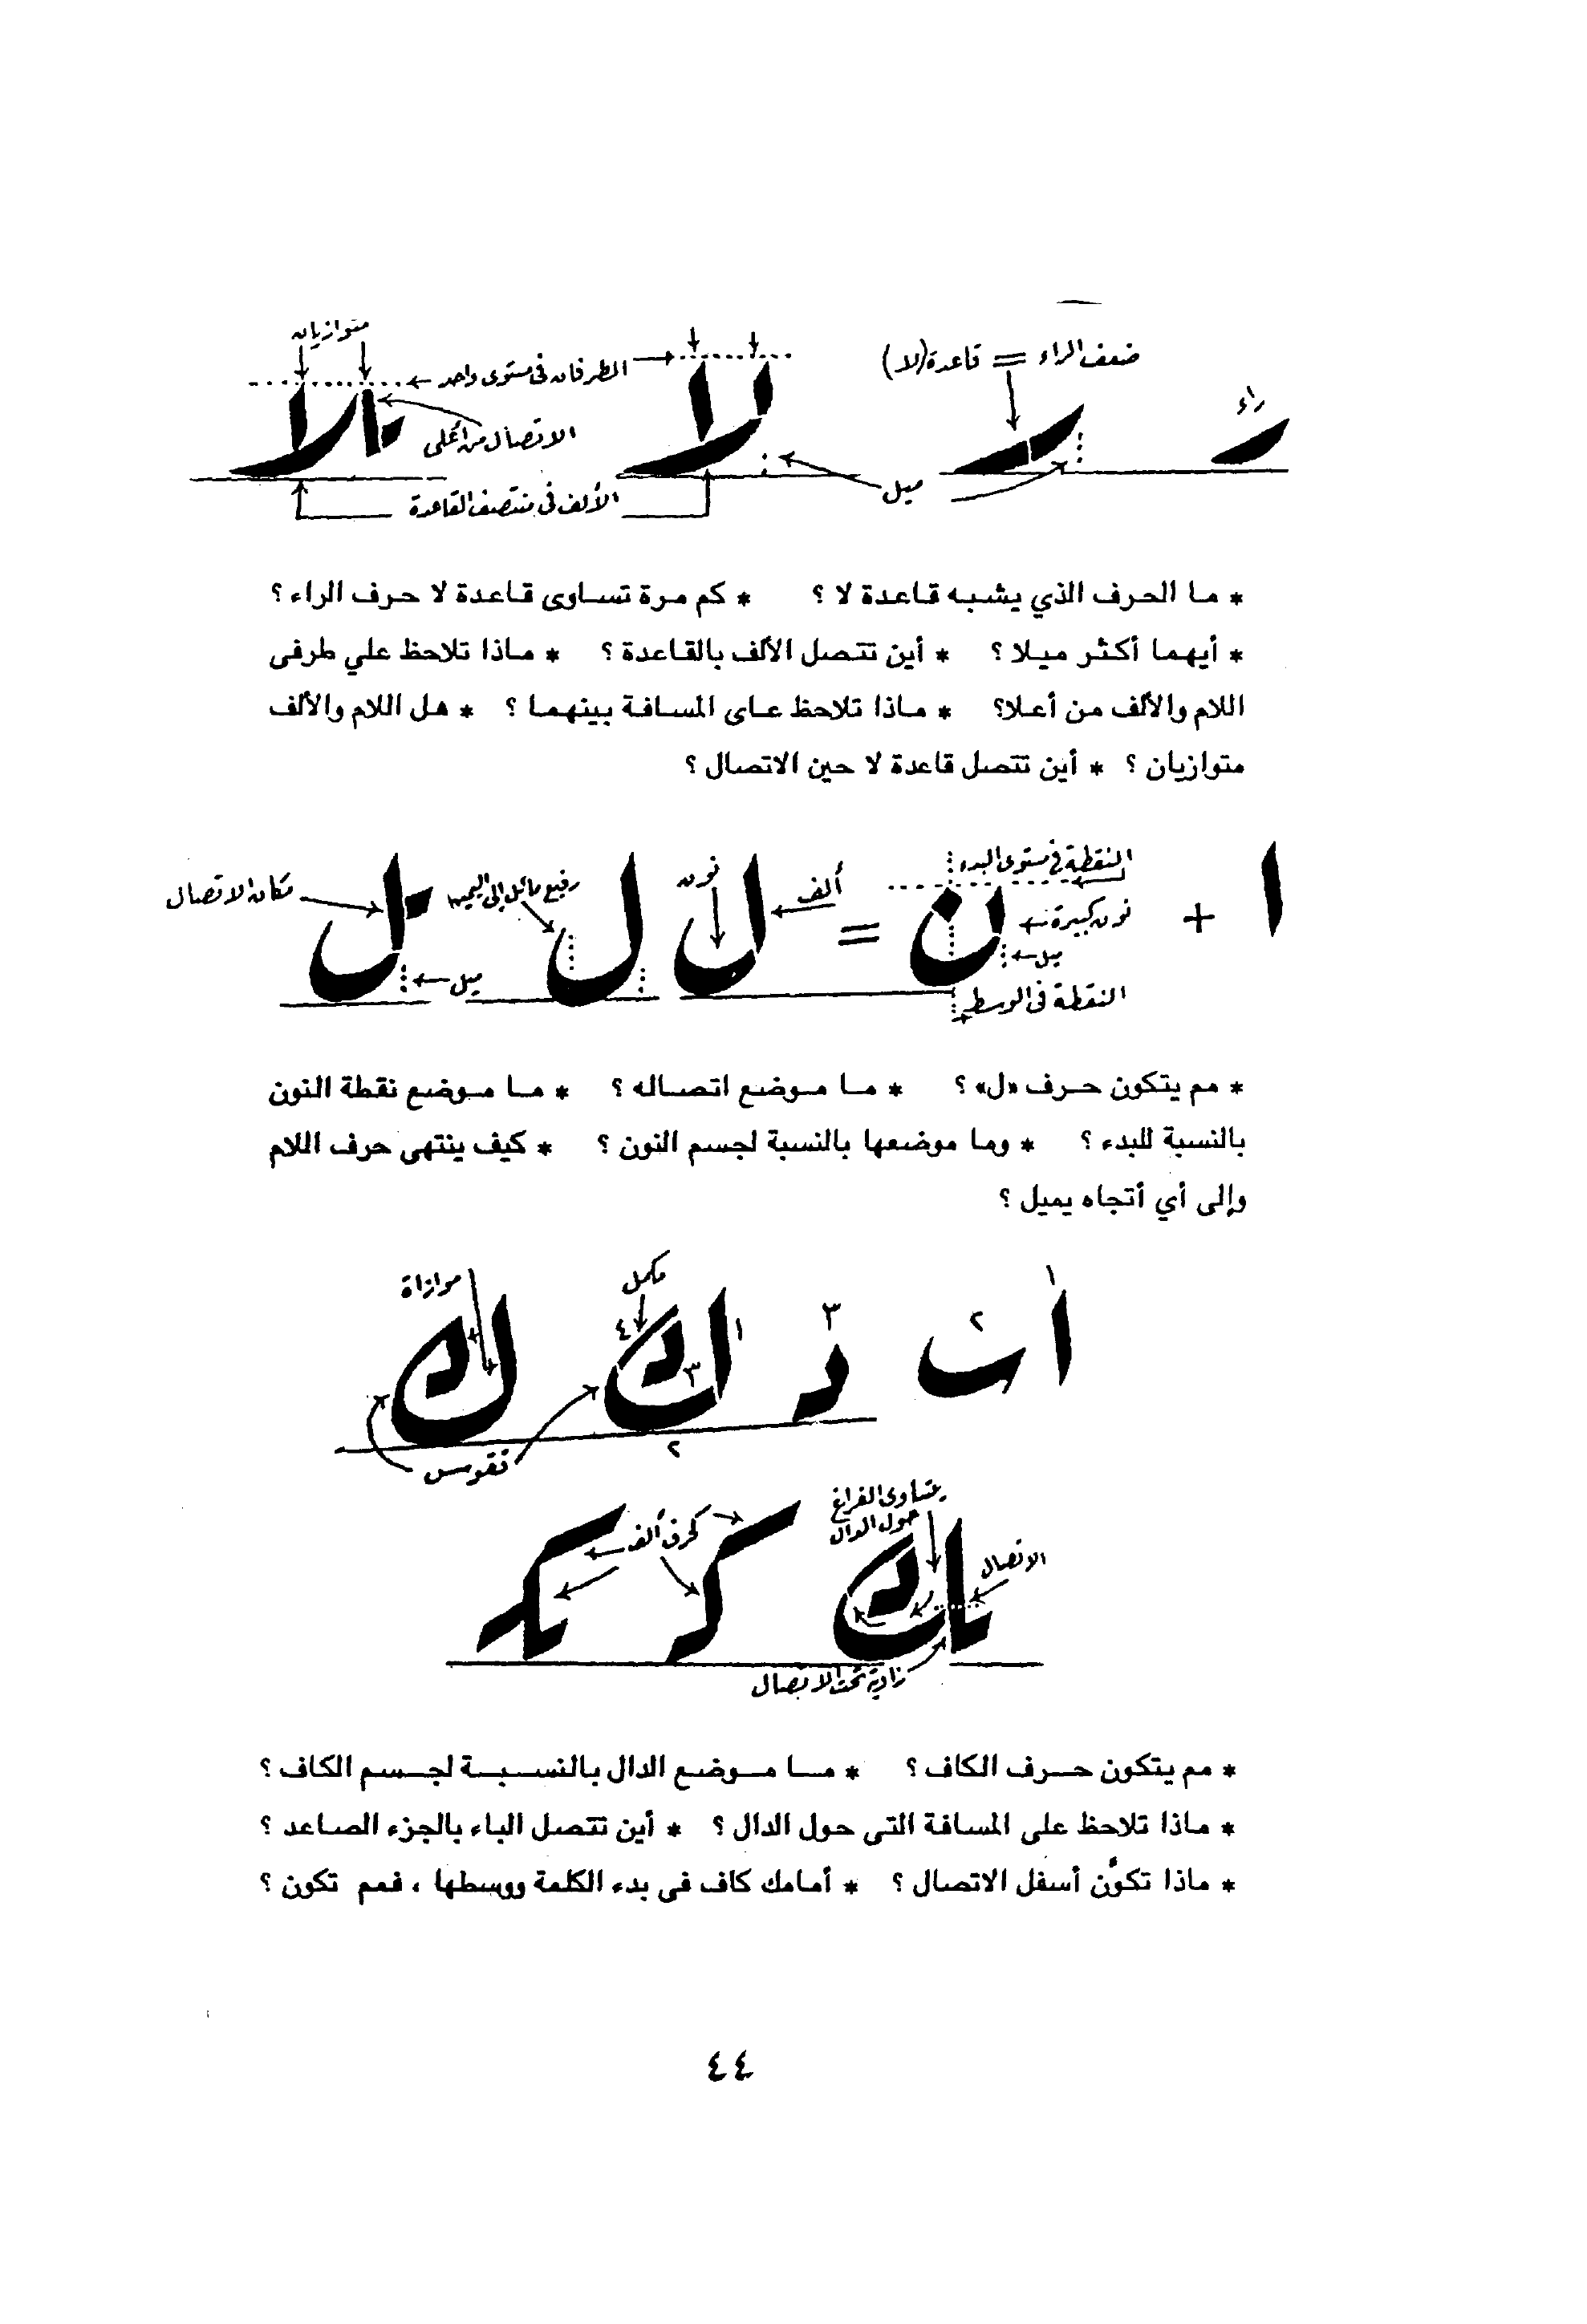 راء
ضعف الراء = قاعدة (لا)
ميل
الطرفان في مستوى واحد
متوازيان
الاتصال من أعلى
الألف في منتصف القاعدة
* ما الحرف الذي يشبه قاعدة لا ؟ * كم مرة تساوى قاعدة لا حرف الراء ؟
* أيهما أكثر ميلا ؟ * أين تتصل الألف بالقاعدة ؟ * ماذا تلاحظ علي طرفى
اللام والألف من أعلا؟ * ماذا تلاحظ عاى المسافة بينهما ؟ * هل اللام والألف
متوازيان ؟ * أين تتصل قاعدة لا حين الاتصال ؟
ا + ن = ل ل
النقطة في مستوى البدء
نون كبيرة
ميل
النقطة في الوسط
ألف
نون
رفيع مائل إلى اليمين
ميل
مكان الاتصال
* مم يتكون حرف «ل» ؟ * ما موضع اتصاله ؟ * ما موضع نقطة النون
بالنسبة للبدء ؟ * وما موضعها بالنسبة لجسم النون ؟ * كيف ينتهى حرف اللام
وإلى أي أتجاه يميل ؟
١
٢
٣
مكمل
١
٤
٣
٢
موازاة
تقوس
يتساوى الفراغ
حول الدال
الاتصال
كحرف ألف
زاوية تحت الاتصال
* مم يتكون حرف الكاف ؟ * ما موضع الدال بالنسبة لجسم الكاف ؟
* ماذا تلاحظ على المسافة التى حول الدال ؟ * أين تتصل الباء بالجزء الصاعد ؟
* ماذا تكوَّن أسفل الاتصال ؟ * أمامك كاف فى بدء الكلمة ووسطها ، فمم تكون ؟
٤٤